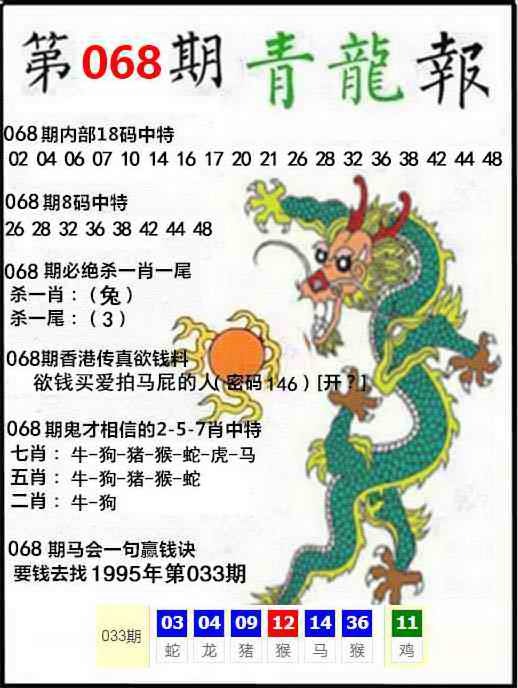 第068期青龍報
068期内部18码中特
02 04 06 07 10 14 16 17 20 21 26 28 32 36 38 42 44 48
068期8码中特
26 28 32 36 38 42 44 48
068期必绝杀一肖一尾
杀一肖：（兔）
杀一尾：（3）
068期香港传真欲钱料
欲钱买爱拍马屁的人（密码146）[开？]
068期鬼才相信的2-5-7肖中特
七肖：牛-狗-猪-猴-蛇-虎-马
五肖：牛-狗-猪-猴-蛇
二肖：牛-狗
068期马会一句赢钱诀
要钱去找1995年第033期
033期 03 04 09 12 14 36 11
蛇 龙 猪 猴 马 猴 鸡